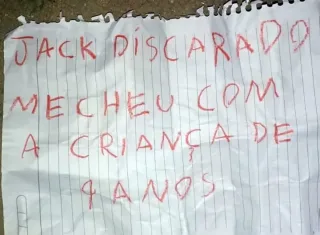 JACK DISCARADO
MECHEU COM
A CRIANÇA DE
4 ANOS